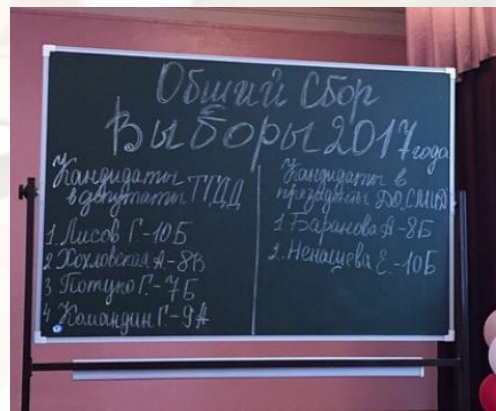 Общий Сбор
Выборы 2017 года
Кандидаты
в депутаты ТГДД
1. Лисов Г.-10Б
2. Хохловская А.-8В
3 Потупо Г.-7Б
4 Командин Г.-9А
Кандидаты в
президенты ДО
1 Баранова А-8Б
2. Ненашева Е.-10Б